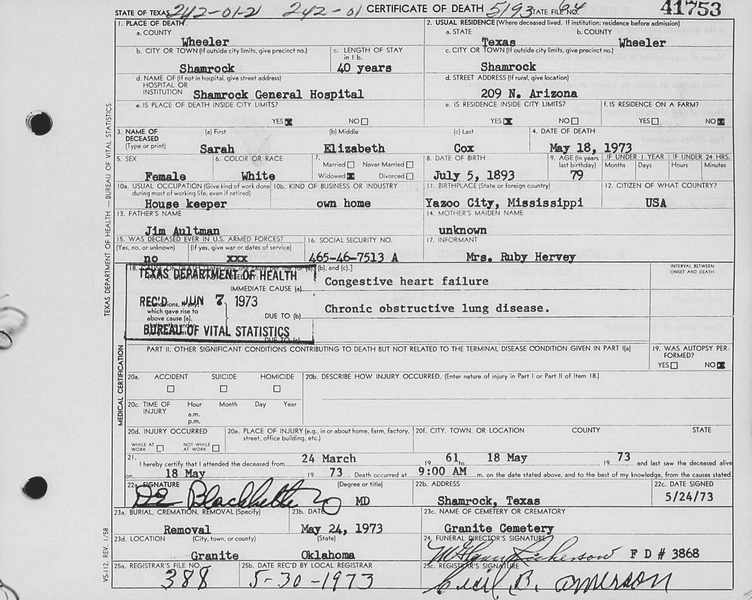 STATE OF TEXAS 242-01-21 242-01 CERTIFICATE OF DEATH 5193 STATE FILE NO. 64 41753
1. PLACE OF DEATH
a. COUNTY
Wheeler
2. USUAL RESIDENCE (Where deceased lived. If institution: residence before admission)
a. STATE b. COUNTY
Texas Wheeler
b. CITY OR TOWN (If outside city limits, give precinct no.) c. LENGTH OF STAY in 1 b.
Shamrock 40 years
c. CITY OR TOWN (If outside city limits, give precinct no.)
Shamrock
d. NAME OF (If not in hospital, give street address)
HOSPITAL OR
INSTITUTION Shamrock General Hospital
d. STREET ADDRESS (If rural, give location)
209 N. Arizona
e. IS PLACE OF DEATH INSIDE CITY LIMITS?
YES NO
e. IS RESIDENCE INSIDE CITY LIMITS?
YES NO
f. IS RESIDENCE ON A FARM?
YES NO
3. NAME OF DECEASED (Type or print)
(a) First (b) Middle (c) Last
Sarah Elizabeth Cox
4. DATE OF DEATH
May 18, 1973
5. SEX
Female
6. COLOR OR RACE
White
7.
Married Never Married
Widowed Divorced
8. DATE OF BIRTH
July 5, 1893
9. AGE (In years last birthday)
79
IF UNDER 1 YEAR
Months Days
IF UNDER 24 HRS.
Hours Minutes
10a. USUAL OCCUPATION (Give kind of work done during most of working life, even if retired)
House keeper
10b. KIND OF BUSINESS OR INDUSTRY
own home
11. BIRTHPLACE (State or foreign country)
Yazoo City, Mississippi
12. CITIZEN OF WHAT COUNTRY?
USA
13. FATHER'S NAME
Jim Aultman
14. MOTHER'S MAIDEN NAME
unknown
15. WAS DECEASED EVER IN U.S. ARMED FORCES?
(Yes, no, or unknown) (If yes, give war or dates of service)
no xxx
16. SOCIAL SECURITY NO.
465-46-7513 A
17. INFORMANT
Mrs. Ruby Hervey
18. [b], and (c).]
INTERVAL BETWEEN ONSET AND DEATH
TEXAS DEPARTMENT OF HEALTH
REC'D JUN 7 1973
BUREAU OF VITAL STATISTICS
IMMEDIATE CAUSE (a)
Congestive heart failure
which gave rise to above cause (a),
DUE TO (b)
Chronic obstructive lung disease.
DUE TO (c)
PART II. OTHER SIGNIFICANT CONDITIONS CONTRIBUTING TO DEATH BUT NOT RELATED TO THE TERMINAL DISEASE CONDITION GIVEN IN PART I(a)
19. WAS AUTOPSY PERFORMED?
YES NO
20a. ACCIDENT SUICIDE HOMICIDE
20b. DESCRIBE HOW INJURY OCCURRED. (Enter nature of injury in Part I or Part II of Item 18.)
20c. TIME OF INJURY Hour Month Day Year
a.m.
p.m.
20d. INJURY OCCURRED
WHILE AT WORK NOT WHILE AT WORK
20e. PLACE OF INJURY (e.g., in or about home, farm, factory, street, office building, etc.)
20f. CITY, TOWN, OR LOCATION COUNTY STATE
21. I hereby certify that I attended the deceased from 24 March 19 61 to 18 May 19 73 and last saw the deceased alive
on 18 May 19 73 Death occurred at 9:00 AM m. on the date stated above, and to the best of my knowledge, from the causes stated.
22a. SIGNATURE (Degree or title)
MD
22b. ADDRESS
Shamrock, Texas
22c. DATE SIGNED
5/24/73
23a. BURIAL, CREMATION, REMOVAL (Specify)
Removal
23b. DATE
May 24, 1973
23c. NAME OF CEMETERY OR CREMATORY
Granite Cemetery
23d. LOCATION (City, town, or county) (State)
Granite Oklahoma
24. FUNERAL DIRECTOR'S SIGNATURE
F D # 3868
25a. REGISTRAR'S FILE NO.
388
25b. DATE REC'D BY LOCAL REGISTRAR
5-30-1973
25c. REGISTRAR'S SIGNATURE
Cecil B.
TEXAS DEPARTMENT OF HEALTH — BUREAU OF VITAL STATISTICS
MEDICAL CERTIFICATION
VS-112, REV. 1/58